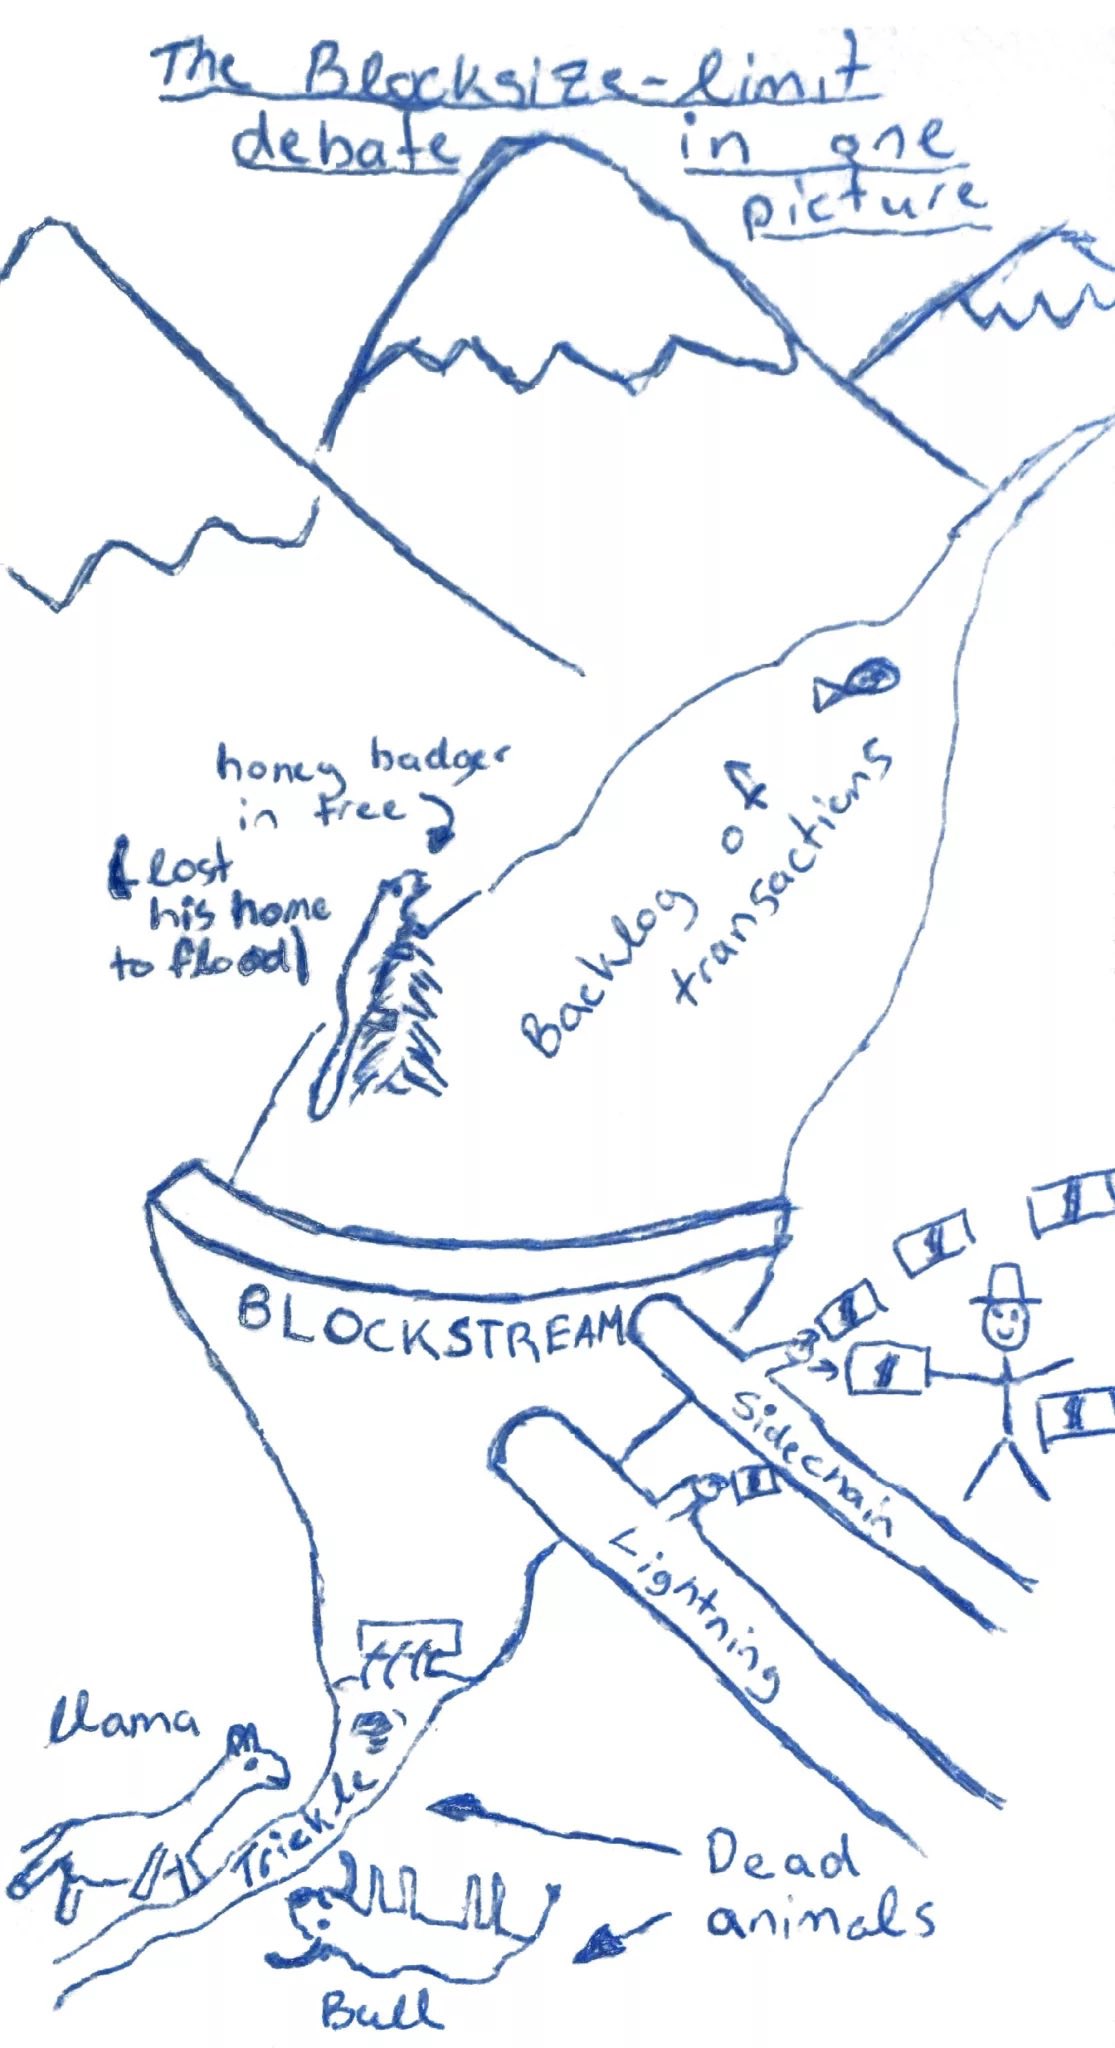 The Blocksize-limit
debate in one
picture
honey badger
in tree
( lost
his home
to flood)
Backlog of
transactions
BLOCKSTREAM
$
$
$
$
$
$
Sidechain
Lightning
llama
Trickle
Dead
animals
Bull